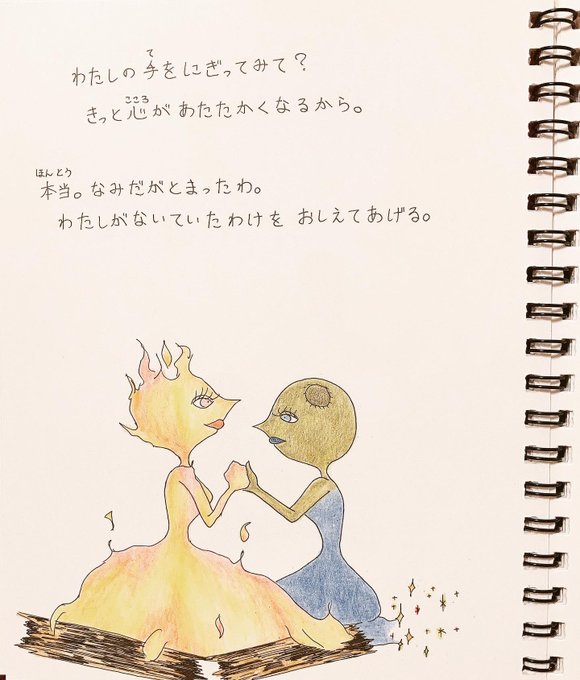 わたしの手をにぎってみて?
きっと心があたたかくなるから。
本当。なみだがとまったわ。
わたしがないていたわけを おしえてあげる。